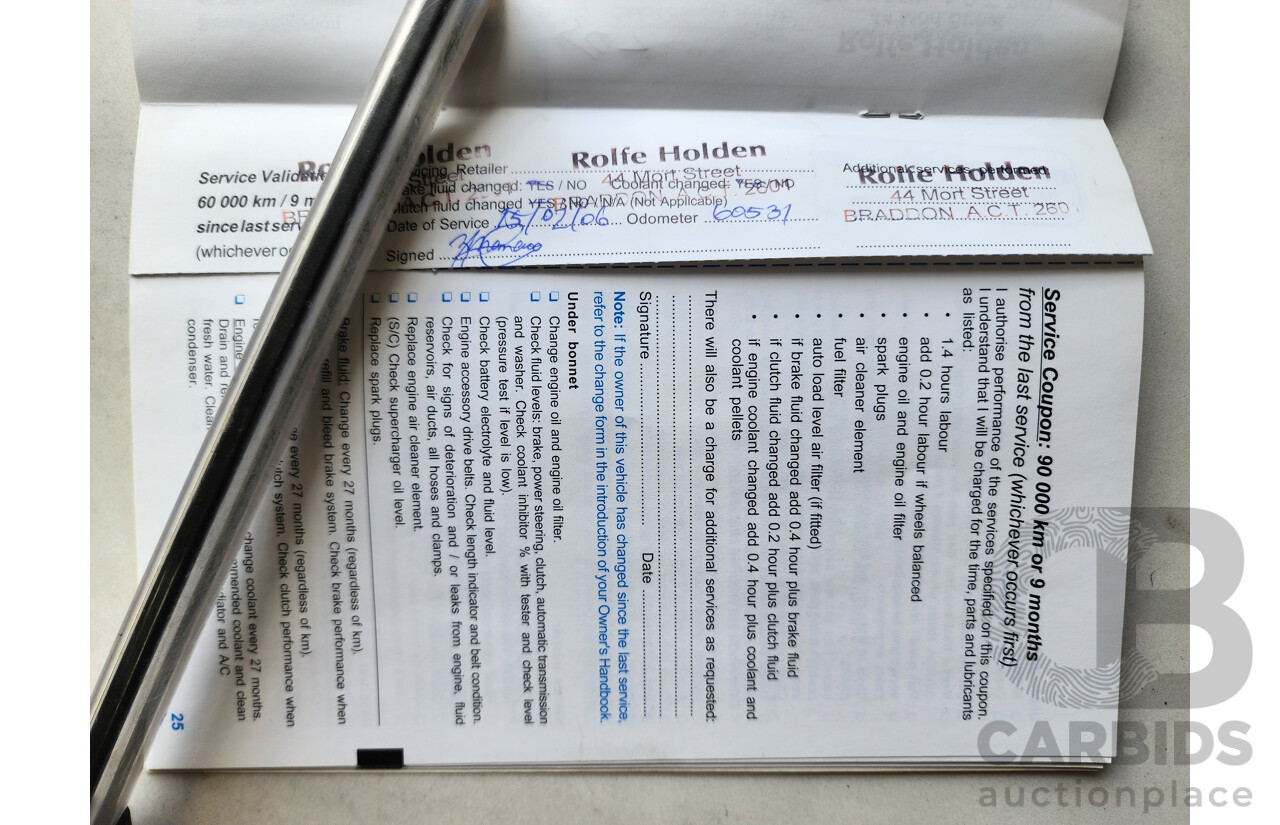 Rolfe Holden
44 Mort Street
BRADDON A.C.T. 260
Rolfe Holden
44 Mort Street
BRADDON A.C.T. 2601
Holden
Street
Service
60 000 km / 9
since last
(whichever
Retailer
fluid changed: YES / NO Coolant changed: YES / NO
fluid changed YES / NO / N/A (Not Applicable)
Date of Service 15/02/06 Odometer 60531
Signed
Additional services performed
Service Coupon: 90 000 km or 9 months
from the last service (whichever occurs first)
I authorise performance of the services specified on this coupon.
I understand that I will be charged for the time, parts and lubricants
as listed:
• 1.4 hours labour
• add 0.2 hour labour if wheels balanced
• engine oil and engine oil filter
• spark plugs
• air cleaner element
• fuel filter
• auto load level air filter (if fitted)
• if brake fluid changed add 0.4 hour plus brake fluid
• if clutch fluid changed add 0.2 hour plus clutch fluid
• if engine coolant changed add 0.4 hour plus coolant and
coolant pellets
There will also be a charge for additional services as requested:
Signature Date
Note: If the owner of this vehicle has changed since the last service,
refer to the change form in the introduction of your Owner's Handbook.
Under bonnet
❑ Change engine oil and engine oil filter.
❑ Check fluid levels: brake, power steering, clutch, automatic transmission
and washer. Check coolant inhibitor % with tester and check level
(pressure test if level is low).
❑ Check battery electrolyte and fluid level.
❑ Engine accessory drive belts. Check length indicator and belt condition.
❑ Check for signs of deterioration and / or leaks from engine, fluid
reservoirs, air ducts, all hoses and clamps.
❑ Replace engine air cleaner element.
❑ (S/C) Check supercharger oil level.
❑ Replace spark plugs.
Brake fluid. Change every 27 months (regardless of km).
refill and bleed brake system. Check brake performance when
every 27 months (regardless of km).
system. Check clutch performance when
❑ Engine change coolant every 27 months.
Drain and coolant and clean
fresh water. Clean and A/C
condenser.
25
CARBIDS
auctionplace